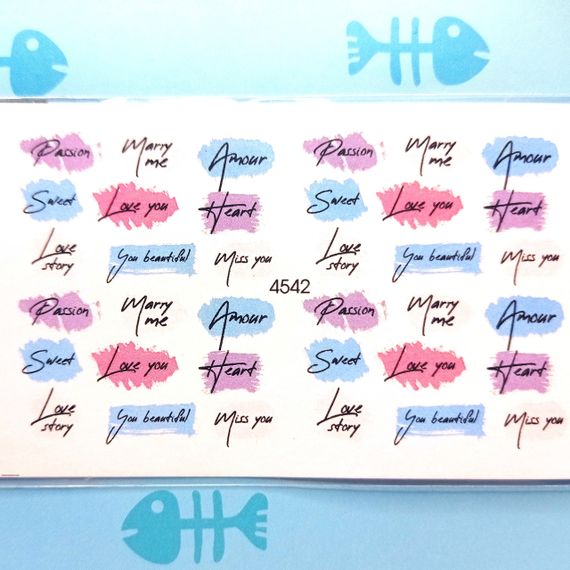 Passion Marry me Amour Passion Marry me Amour
Sweet Love you Heart Sweet Love you Heart
Love story You beautiful Miss you Love story You beautiful Miss you
4542
Passion Marry me Amour Passion Marry me Amour
Sweet Love you Heart Sweet Love you Heart
Love story You beautiful Miss you Love story You beautiful Miss you